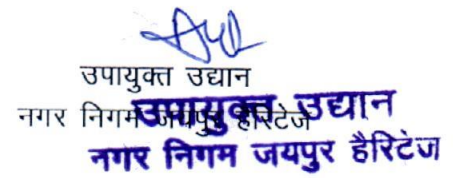 उपायुक्त उद्यान
नगर निगम जयपुर हैरिटेज
उपायुक्त उद्यान
नगर निगम जयपुर हैरिटेज